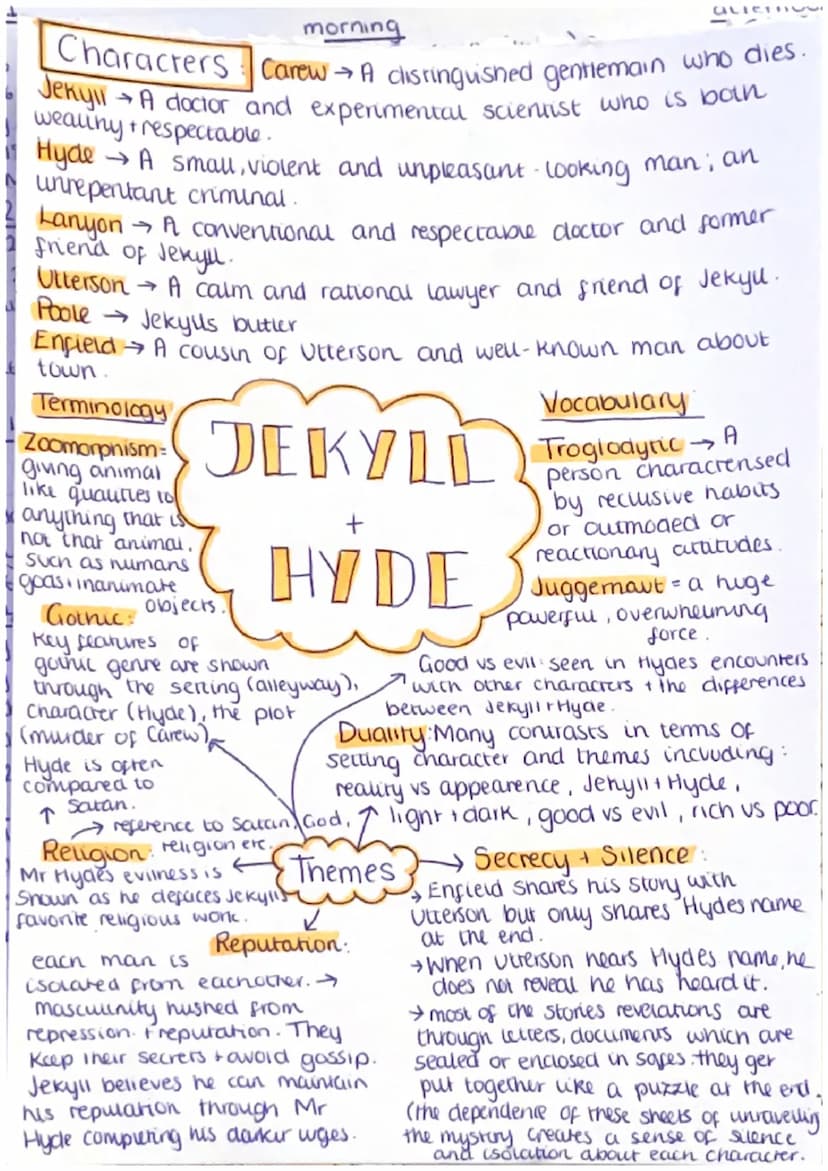 morning
Characters: Carew → A distinguished gentlemain who dies.
Jekyll → A doctor and experimental scientist who is both
wealthy + respectable.
Hyde → A small, violent and unpleasant-looking man; an
unrepentant criminal.
Lanyon → A conventional and respectable doctor and former
friend of Jekyll.
Utterson → A calm and rational lawyer and friend of Jekyll.
Poole → Jekylls butler
Enfield → A cousin of Utterson and well-known man about
town.
Terminology
Zoomorphism =
giving animal
like qualities to
anything that is
not that animal,
such as humans
gods + inanimate
objects.
JEKYLL
+
HYDE
Vocabulary
Troglodytic → A
person characterised
by reclusive habits
or outmoded or
reactionary attitudes.
Juggernaut = a huge
powerful, overwhelming
force.
Gothic:
Key features of
gothic genre are shown
through the setting (alleyway),
character (Hyde), the plot
(murder of Carew)
Good vs evil: seen in Hydes encounters
with other characters + the differences
between Jekyll + Hyde.
Duality: Many contrasts in terms of
setting character and themes including:
reality vs appearence, Jekyll + Hyde,
light + dark, good vs evil, rich vs poor.
Hyde is often
compared to
↑ Satan.
→ reference to Satan, God,
Religion: religion etc.
Mr Hydes evilness is
shown as he defaces Jekylls
favorite religious work.
Themes
Reputation:
each man is
isolated from eachother. →
masculinity hushed from
repression + reputation. They
keep their secrets + avoid gossip.
Jekyll believes he can maintain
his reputation through Mr
Hyde completing his darker urges.
Secrecy + Silence:
→ Enfield shares his story with
Utterson but only shares Hydes name
at the end.
→ When Utterson hears Hydes name, he
does not reveal he has heard it.
→ most of the stories revelations are
through letters, documents which are
sealed or enclosed in safes. they get
put together like a puzzle at the end.
(the dependence of these sheets of unravelling
the mystery creates a sense of silence
and isolation about each character.